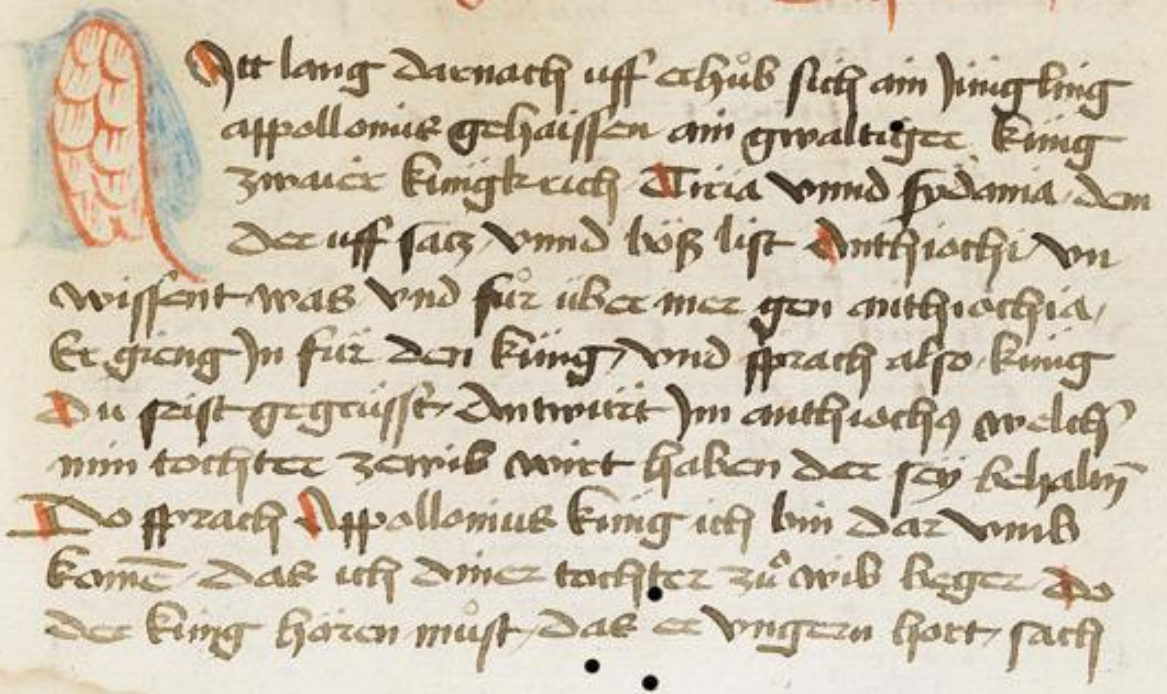 Nitt lang darnach uff erhůb sich ain Jüngling
appollonius gehaissen ain gwaltiger küng
zwaier küngkreich Tiria vnnd sydania dem
der uff satz vnnd böß list Anthiochi vn
wissent was vnd fůr über mer gen anthiochia
Er gieng Jn für den küng vnd sprach also küng
Du seist gegrüsst Antwürt Jm anthiochꝰ welch᷑
min tochter zewib wirt haben der sey behaltn̄
Do sprach Appollonius küng ich bin dar vmb
komē das ich diner tochter zů wib beger Do
der küng hören můst das er vngern hort sach